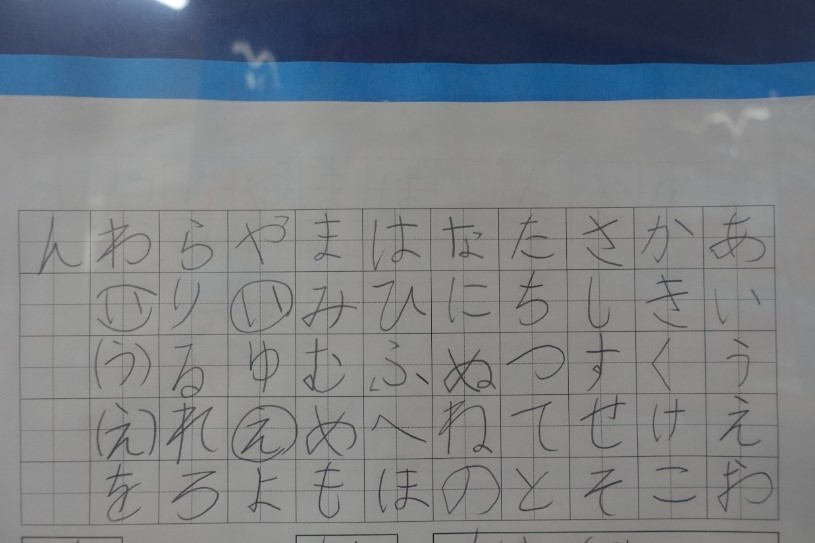 あいうえお
かきくけこ
さしすせそ
たちつてと
なにぬねの
はひふへほ
まみむめも
やいゆえよ
らりるれろ
わい(う)(え)を
ん